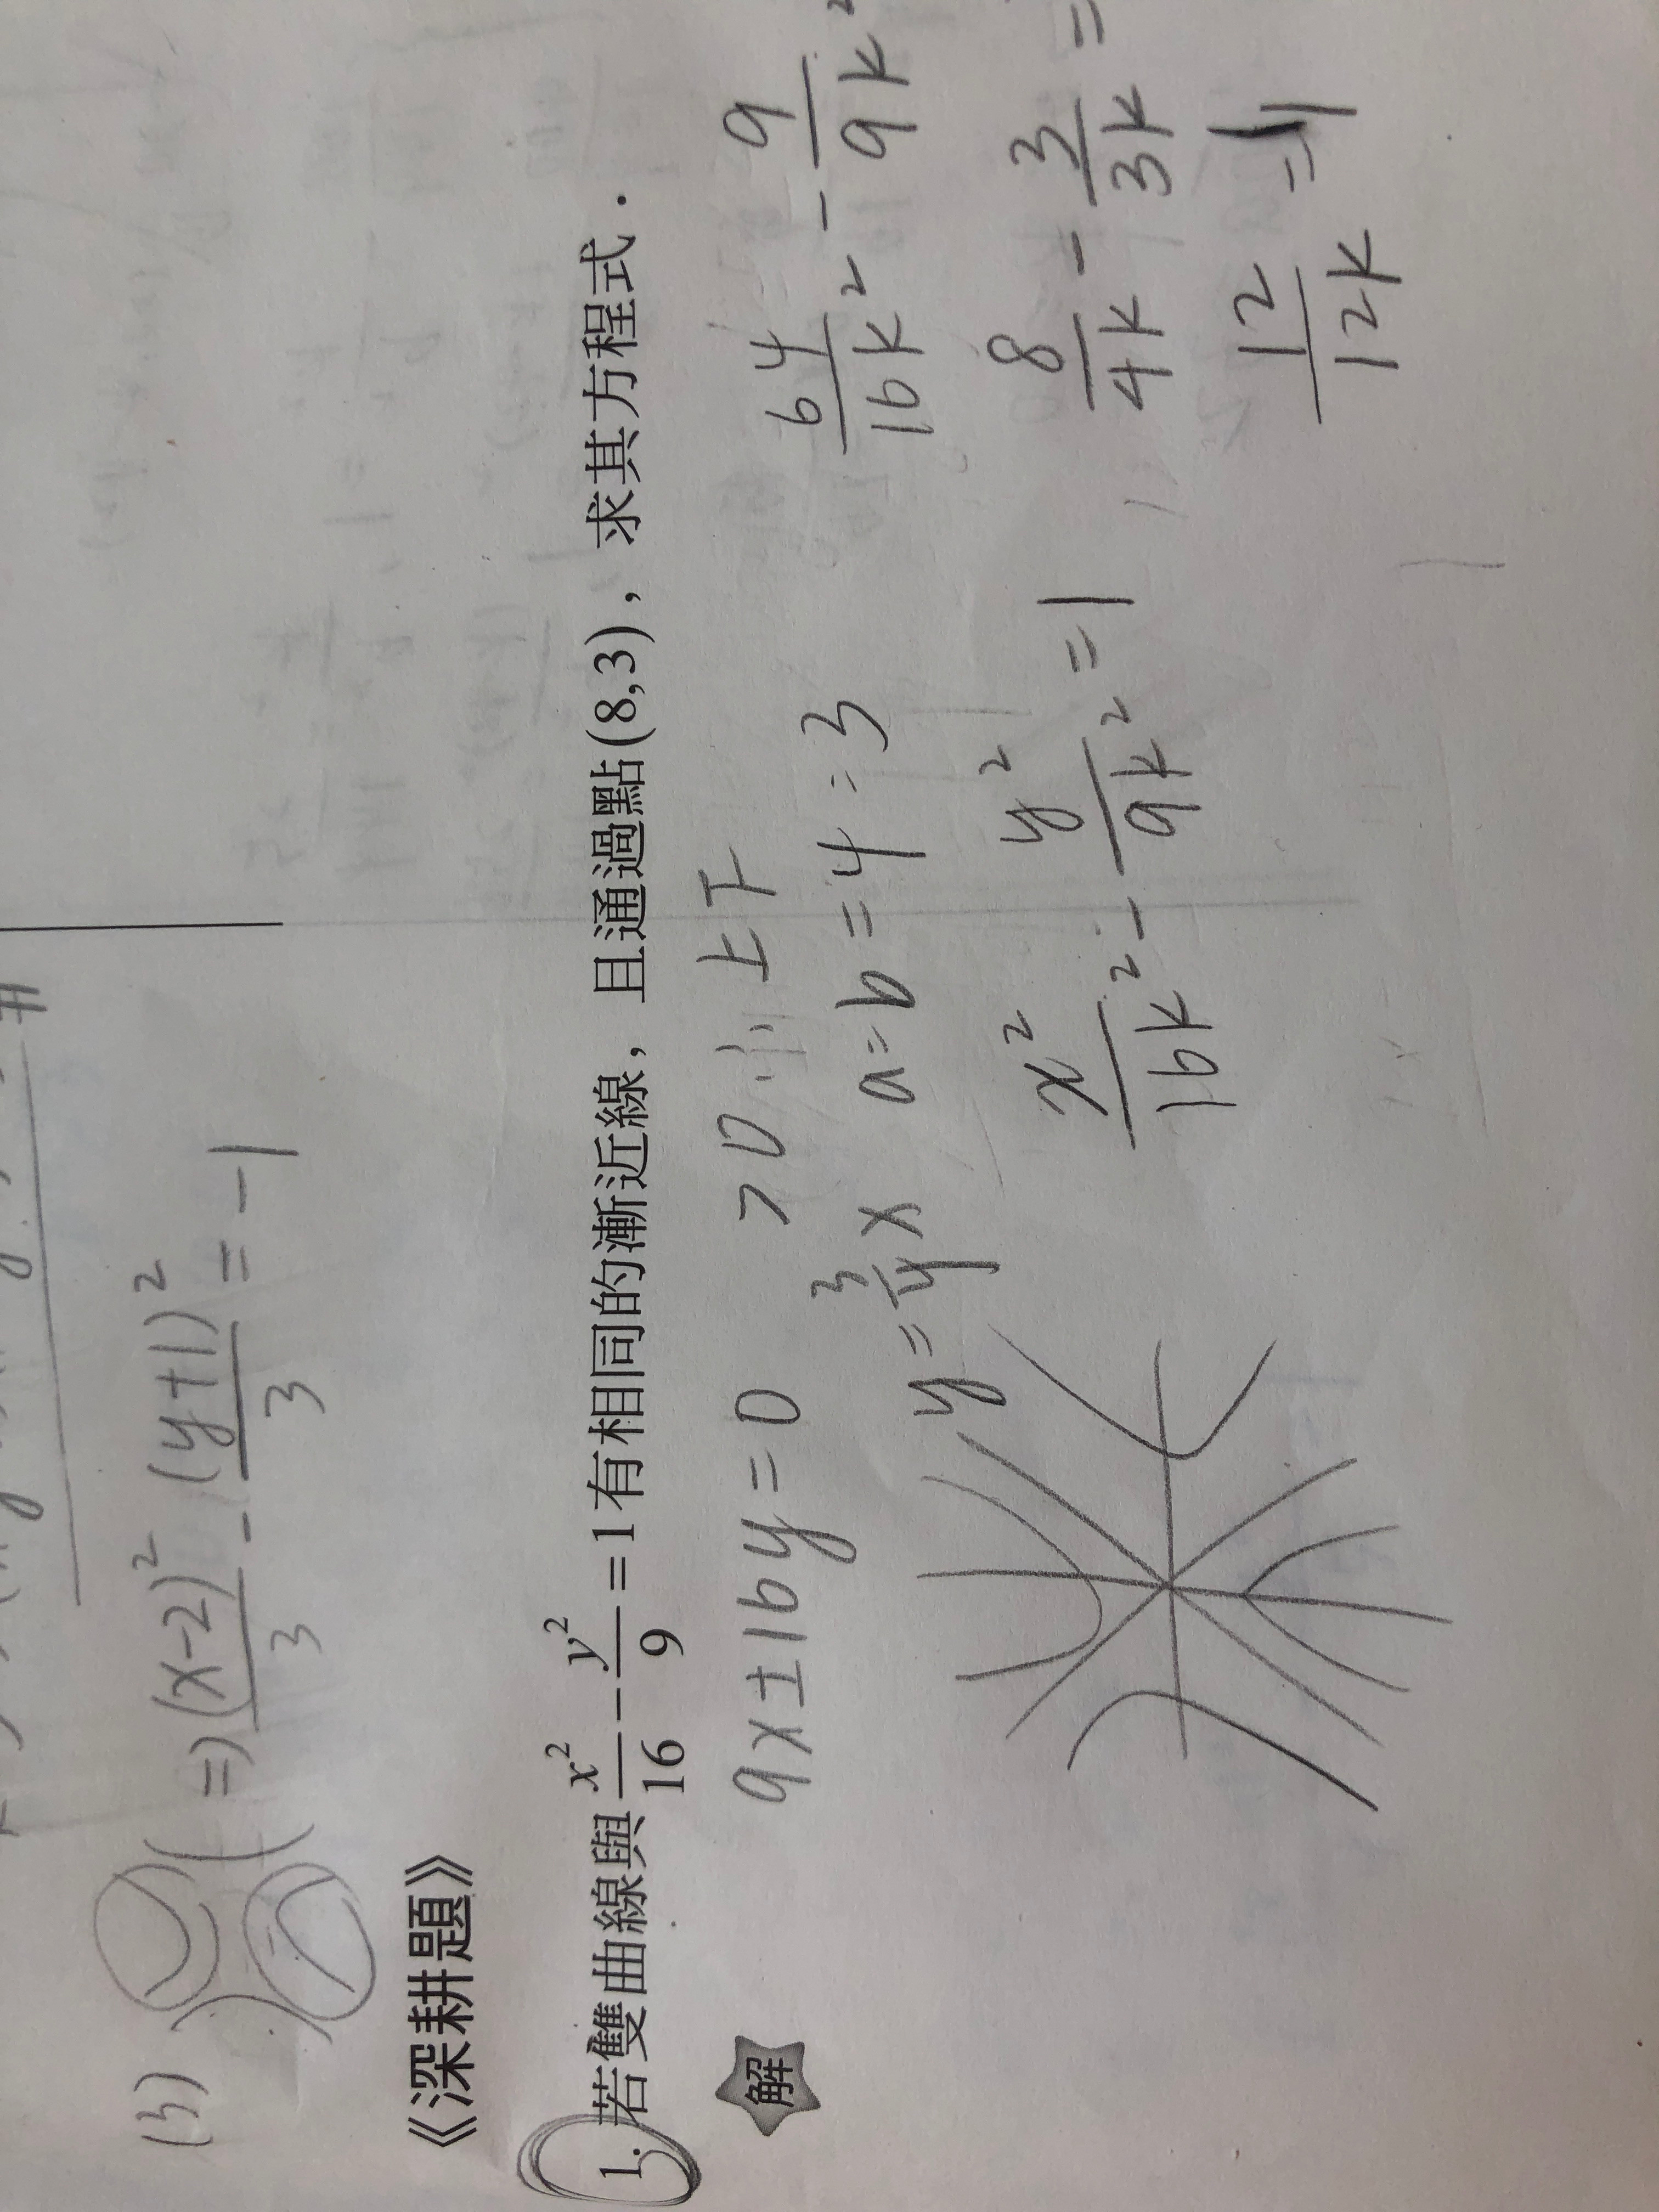 (3) ⇒ (x-2)²/3 - (y+1)²/3 = -1
《深耕題》
1. 若雙曲線與 x²/16 - y²/9 = 1 有相同的漸近線，且通過點(8,3)，求其方程式．
解
9x±16y=0 >0 上下
y=3/4x a:b=4:3
x²/16k² - y²/9k² = 1
64/16k² - 9/9k²
8/4k - 3/3k =
12/12k = 1